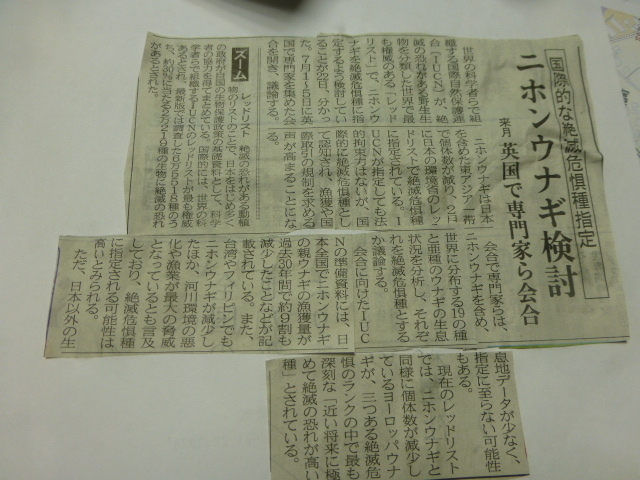 国際的な絶滅危惧種指定
ニホンウナギ検討
来月 英国で専門家ら会合
世界の科学者らで組
織する国際自然保護連
合(IUCN)が、絶
滅の恐れがある野生生
物を分類した世界で最
も権威のある「レッド
リスト」で、ニホンウ
ナギを絶滅危惧種に指
定するよう検討してい
ることが22日、分かっ
た。7月1～5日に英
国で専門家を集めた会
合を開き、議論する。
ニホンウナギは日本
を含めた東アジア一帯
で個体数が減り、2月
に日本の環境省のレッ
ドリストで絶滅危惧種
に指定されている。I
UCNが指定しても法
的拘束力はないが、国
際的に絶滅危惧種とし
て認知され、漁獲や国
際取引の規制を求める
声が高まることにな
る。
会合で専門家らは、
ニホンウナギを含め、
世界に分布する19の種
と亜種のウナギの生息
状況を分析し、それぞ
れを絶滅危惧種とする
か議論する。
会合に向けたIUC
Nの準備資料には、日
本全国でニホンウナギ
の親ウナギの漁獲量が
過去30年間で約9割も
減少したことなどが記
載されている。また、
台湾やフィリピンでも
ニホンウナギが減少し
たほか、河川環境の悪
化や漁業が最大の脅威
となっているとも言及
しており、絶滅危惧種
に指定される可能性は
高いとみられる。
ただ、日本以外の生
息地データが少なく、
指定に至らない可能性
もある。
現在のレッドリスト
では、ニホンウナギと
同様に個体数が減少し
ているヨーロッパウナ
ギが、三つある絶滅危
惧のランクの中で最も
深刻な「近い将来に極
めて絶滅の恐れが高い
種」とされている。
ズーム
レッドリスト 絶滅の恐れがある動植
物のリストのことで、日本をはじめ多く
の政府が自国の生物保護政策の基礎資料として、科学
者の協力を得てまとめている。国際的には、世界の科
学者らで組織するIUCNのレッドリストが最も権威
があるとされ、最新版では調査した6万5518種のう
ち、約3割に当たる2万219種の生物に絶滅の恐れ
があるとされた。